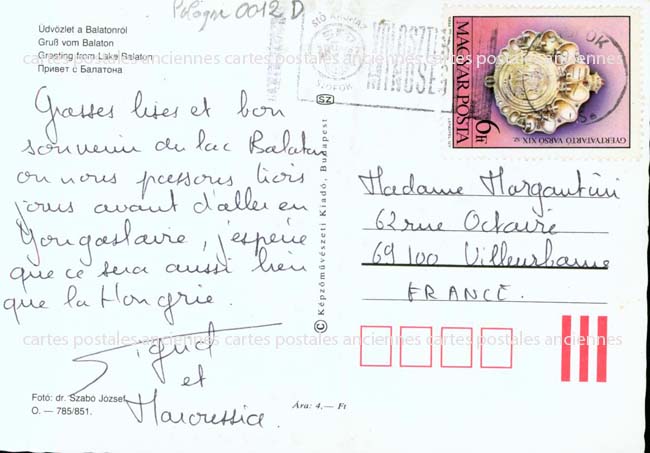 Pologne 0012 D
Üdvözlet a Balatonról
Gruß vom Balaton
Greeting from Lake Balaton
Привет с Балатона
cartes postales anciennes cartes postales anciennes cartes postales anciennes
Grosses bises et bon
souvenir du lac Balaton
où nous passons trois
jours avant d'aller en
Yougoslavie, j'espère
que ce sera aussi bien
que la Hongrie.
et
Fotó: dr. Szabó József
O. — 785/851.
Ára: 4,— Ft
SZ
© Képzőművészeti Kiadó, Budapest
MAGYAR POSTA
6F
GYERTYATARTÓ VARSÓ XIX. sz.
Madame Margantini
62 rue Octavie
69100 Villeurbanne
FRANCE.
cartes postales anciennes cartes postales anciennes cartes postales anciennes